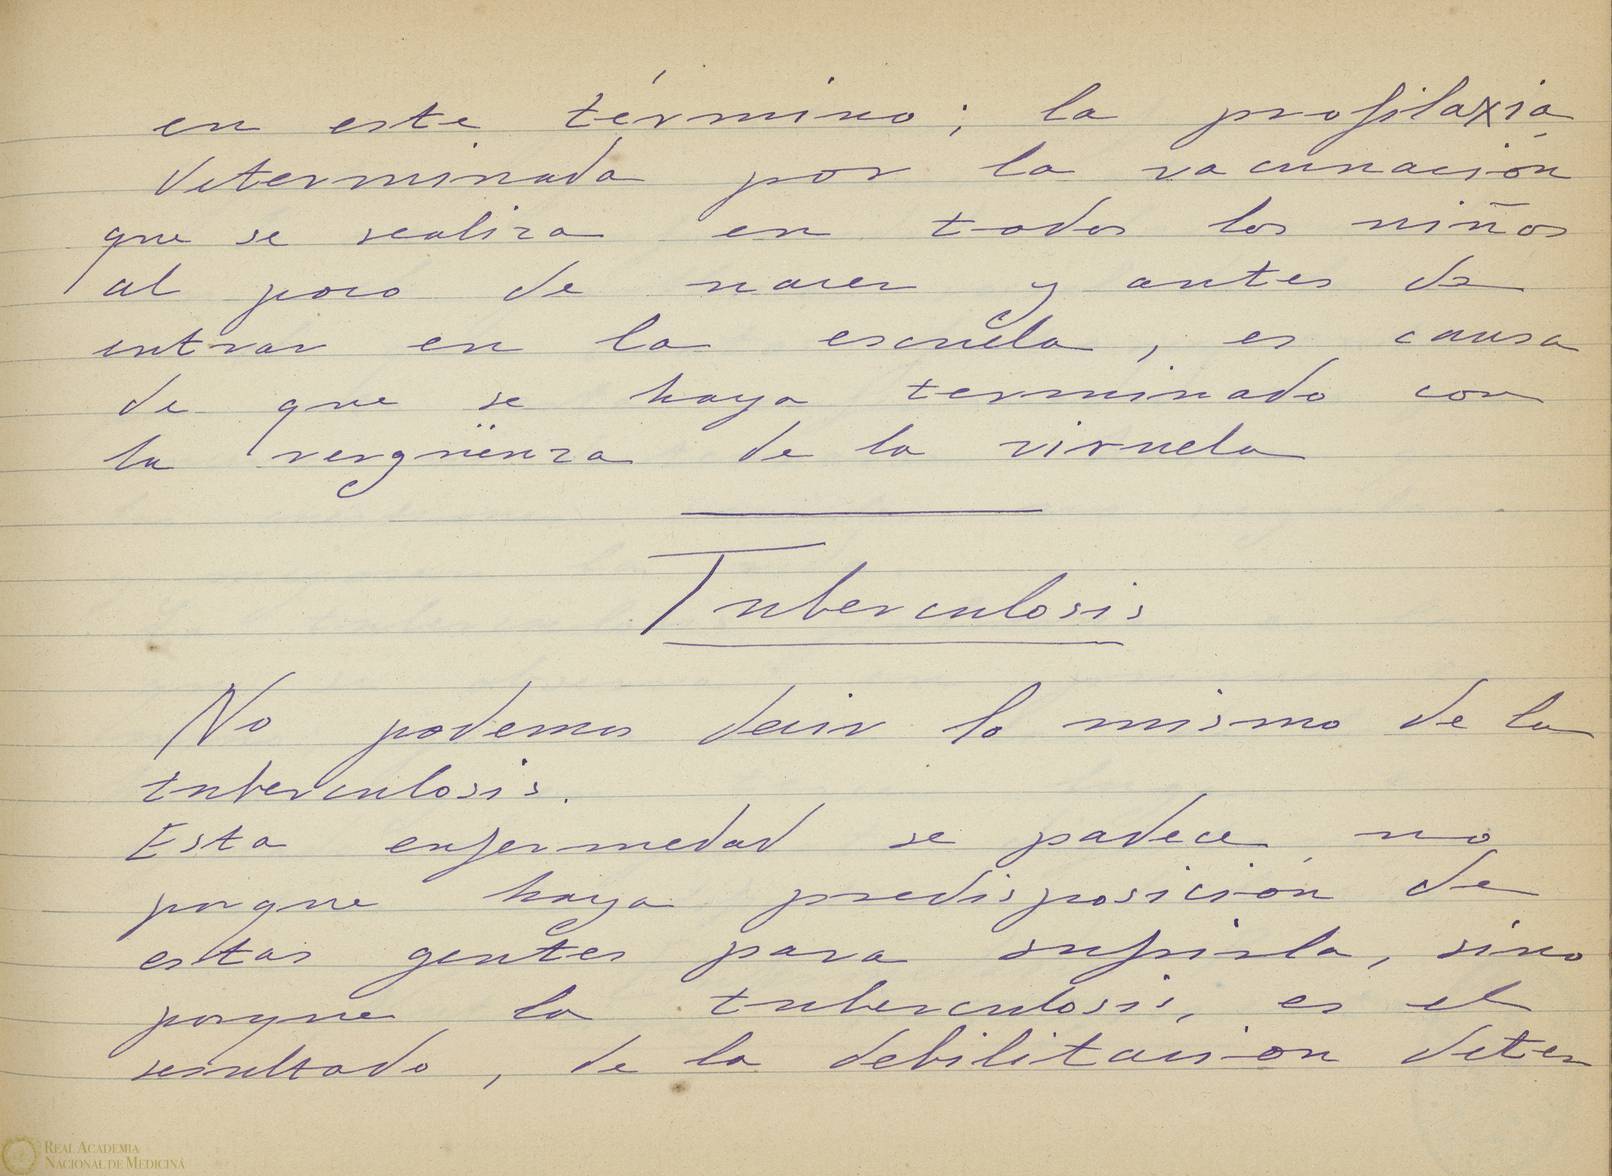 en este término; la profilaxia,
determinada por la vacunación
que se realiza en todos los niños
al poco de nacer y antes de
entrar en la escuela, es causa
de que se haya terminado con
la vergüenza de la viruela
Tuberculosis
No podemos decir lo mismo de la
tuberculosis.
Esta enfermedad se padece, no
porque haya predisposición de
estas gentes para sufrirla, sino
porque la tuberculosis, es el
resultado, de la debilitacion deter
REAL ACADEMIA
NACIONAL DE MEDICINA